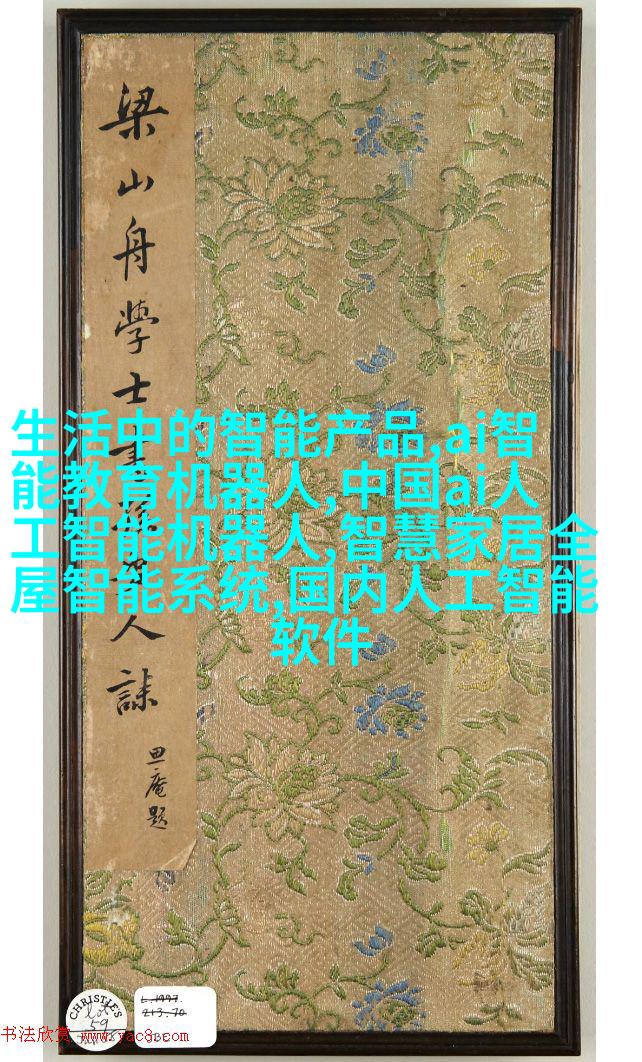 梁山舟學士書
人誄
思庵題
生活中的智能产品,ai智
能教育机器人,中国ai人
工智能机器人,智慧家居全
屋智能系统,国内人工智能
软件
CHRISTIE'S
Lot
59
L.1997.
213.70
书法欣赏 www.yac8.com